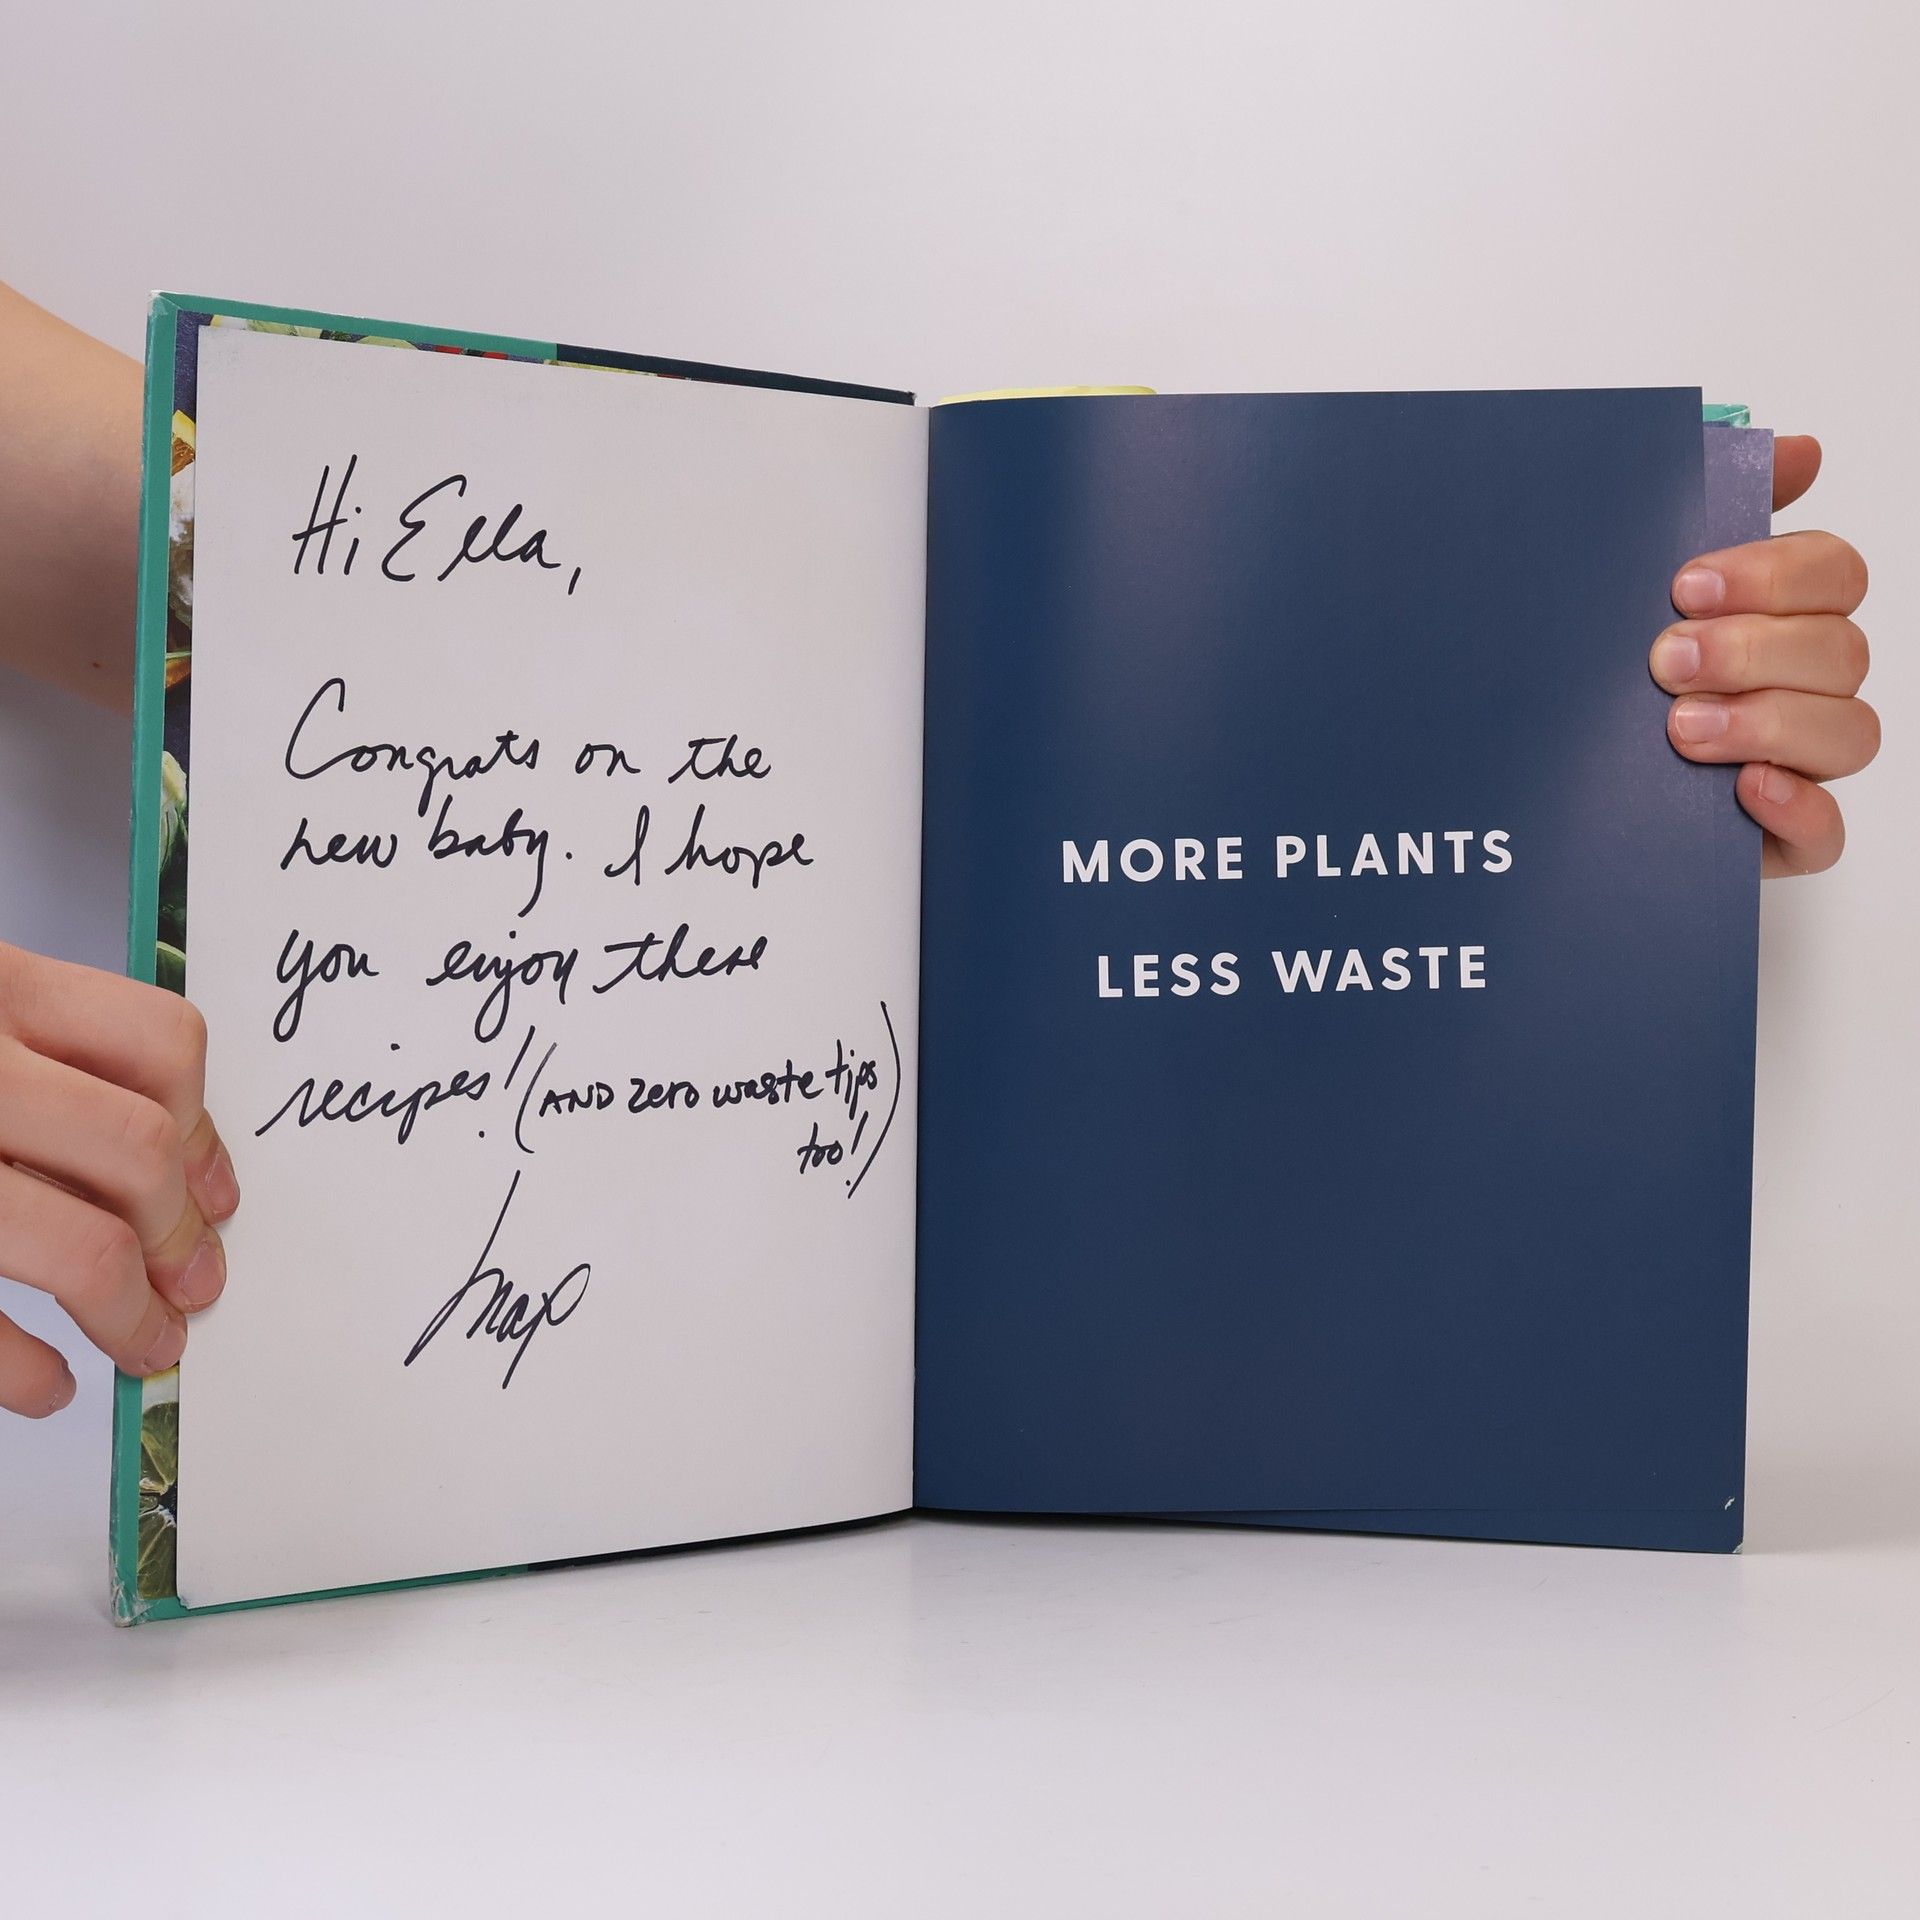 Hi Ella,
Congrats on the
new baby. I hope
you enjoy these
recipes! (AND zero waste tips
too!)
Max
MORE PLANTS
LESS WASTE